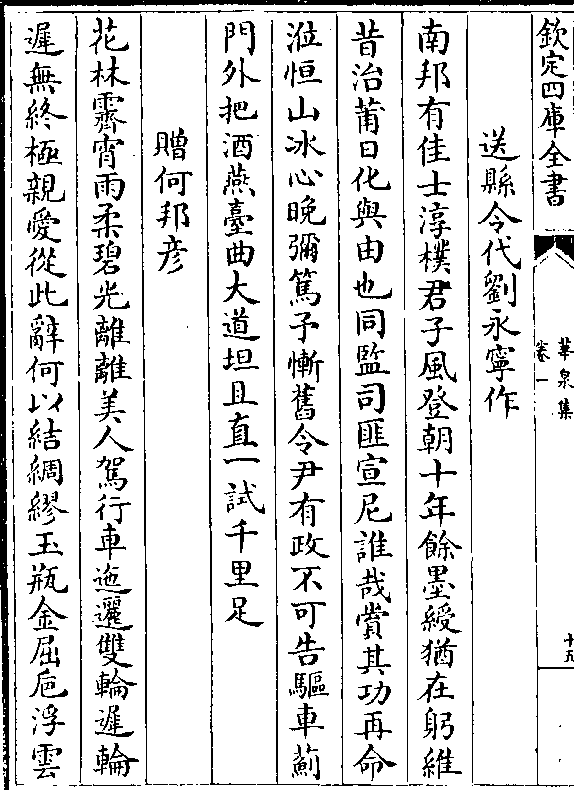 欽定四庫全書
華泉集
卷一
十五
送縣令代劉永寧作
南邦有佳士淳樸君子風登朝十年餘墨綬猶在躬維
昔治莆日化與由也同監司匪宣尼誰哉賞其功再命
涖恒山冰心晚彌篤予慚舊令尹有政不可告驅車薊
門外把酒燕臺曲大道坦且直一試千里足
贈何邦彦
花林霽宵雨柔碧光離離美人駕行車迤邐雙輪遲輪
遲無終極親愛從此辭何以結綢繆玉瓶金屈巵浮雲